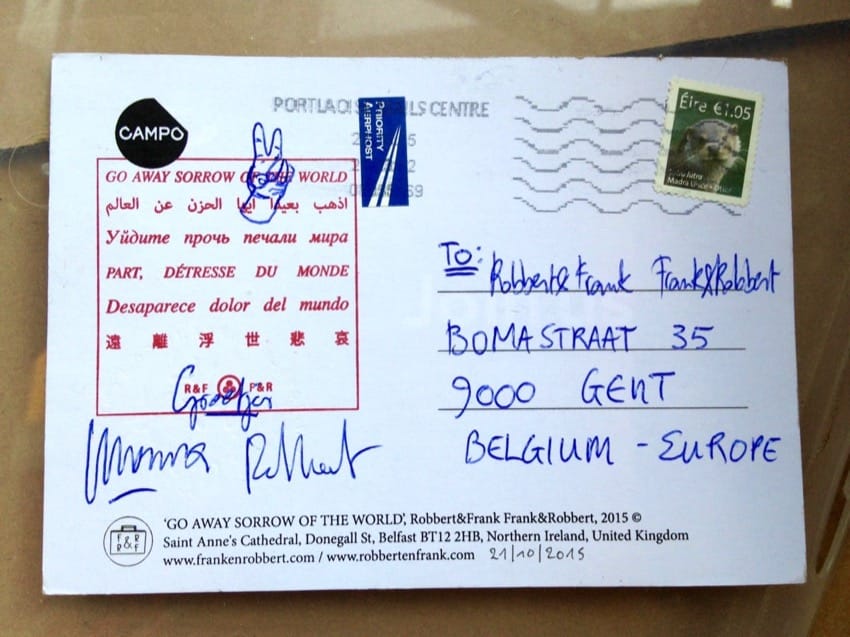 CAMPO
PORTLAOIS ILS CENTRE
PRIORITY
AERPHOST
Éire €1.05
Lutra lutra
Madra Uisce • Otter
GO AWAY SORROW OF THE WORLD
اذهب بعيداً ايها الحزن عن العالم
Уйдите прочь печали мира
PART, DÉTRESSE DU MONDE
Desaparece dolor del mundo
遠 離 浮 世 悲 哀
R&F F&R
To:
Robbert&Frank Frank&Robbert
BOMASTRAAT 35
9000 GENT
BELGIUM - EUROPE
F&R
R&F
'GO AWAY SORROW OF THE WORLD', Robbert&Frank Frank&Robbert, 2015 ©
Saint Anne's Cathedral, Donegall St, Belfast BT12 2HB, Northern Ireland, United Kingdom
www.frankenrobbert.com / www.robbertenfrank.com 21/10/2015